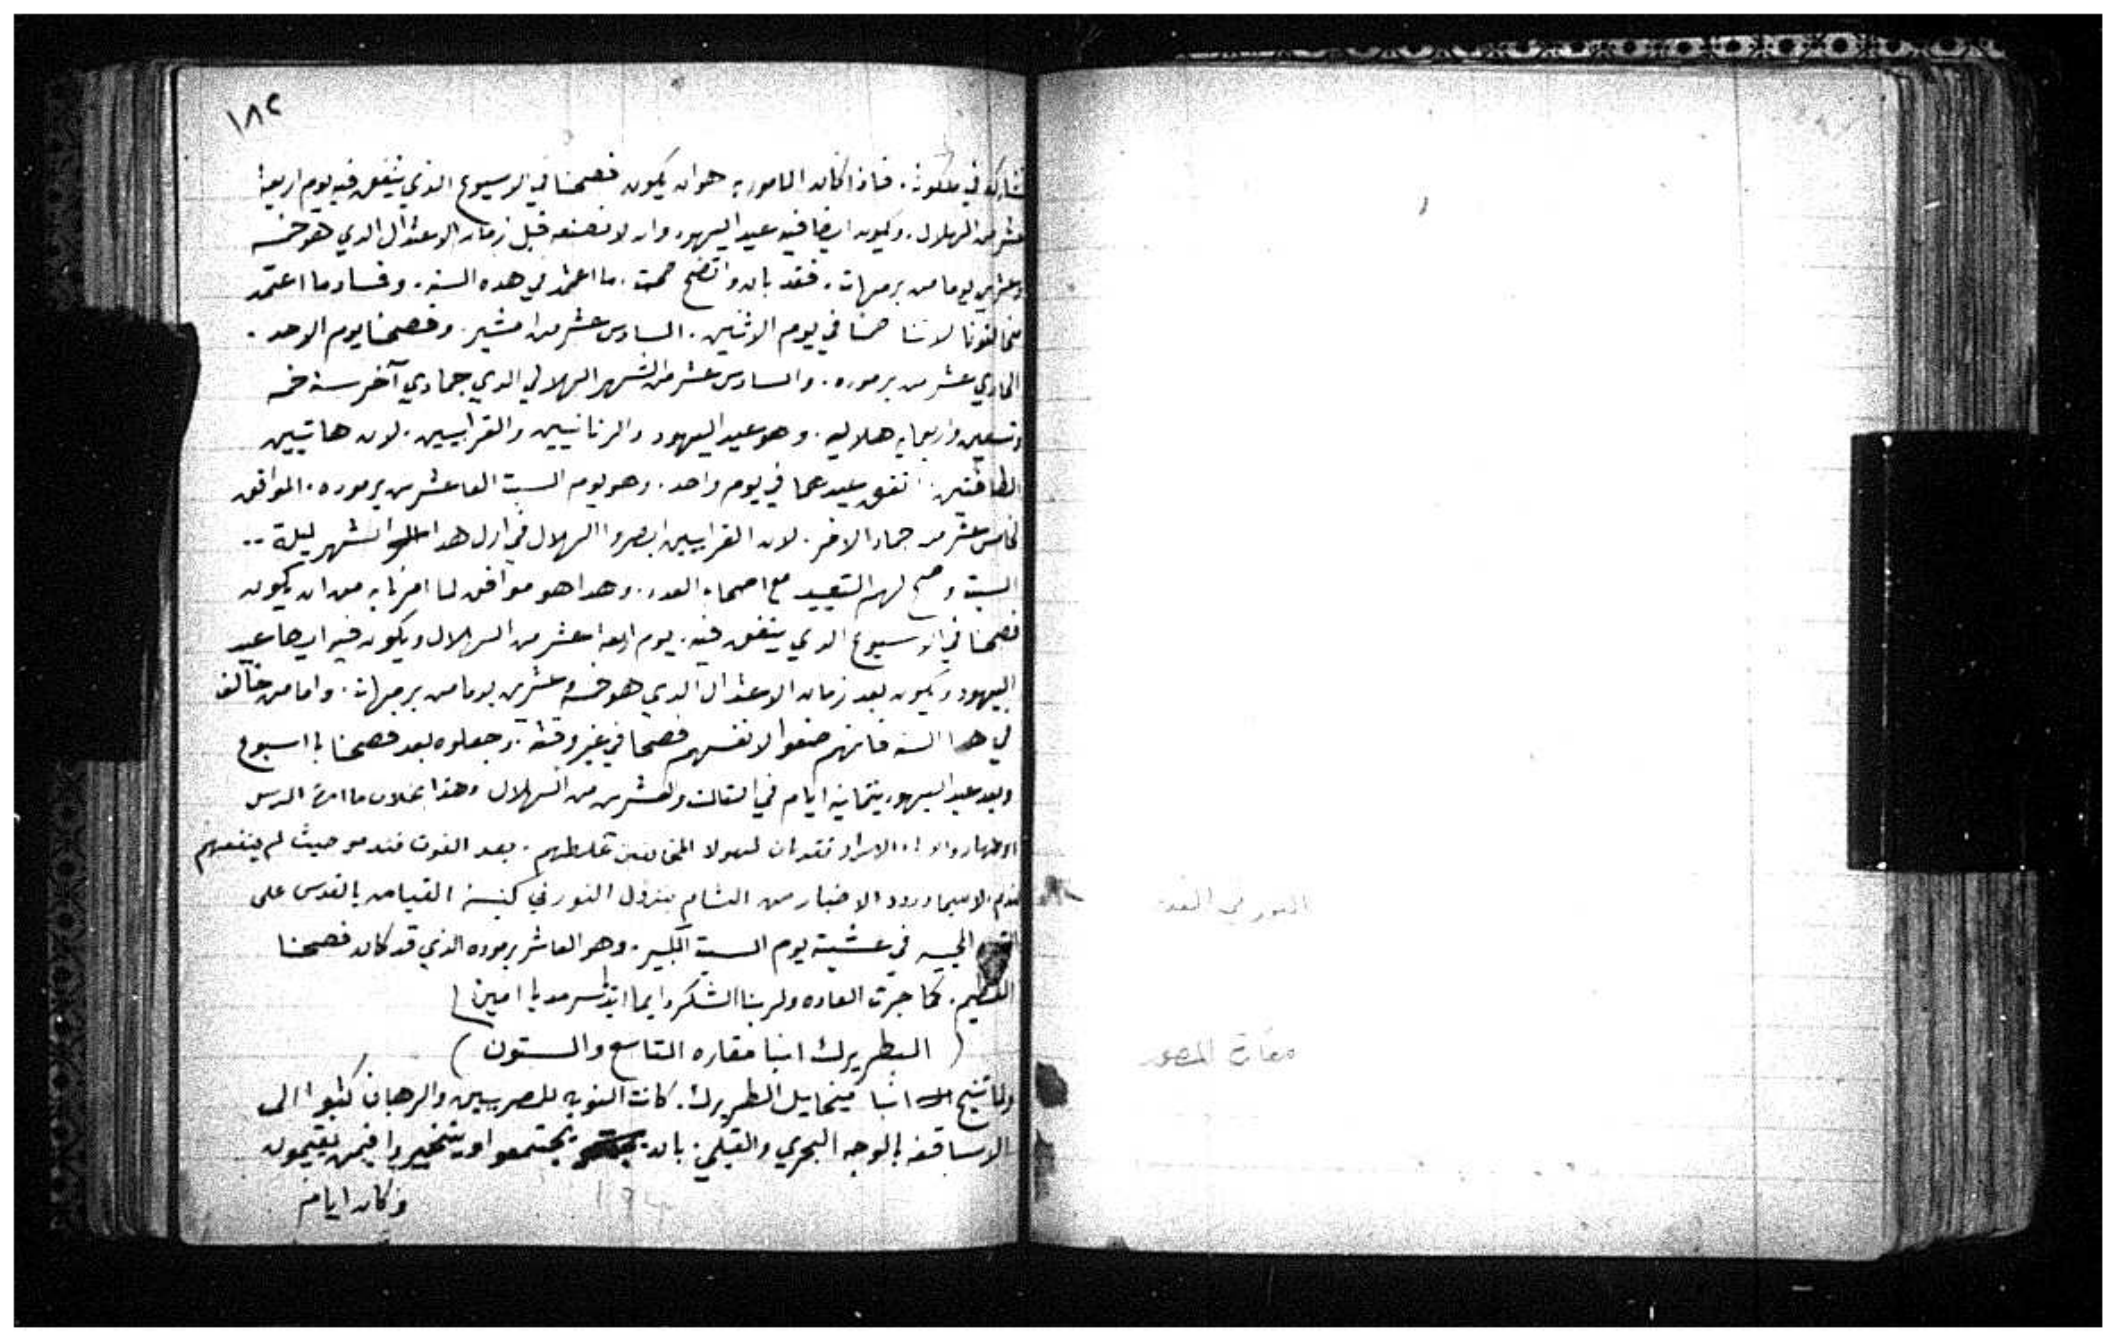 ١٨٢
نشاركه في ملكوته. فاذا كان المامور به هو ان يكون فصحنا في الاسبوع الذي يتفق فيه يوم اربعة
عشر من الهلال. ويكون ايضا فيه عيد اليهود وان لا نصنعه قبل زمان الاعتدال الدي هو خمسه
وعشرين يوما من برمهات. فقد بان واتضح صحت ما اعتمد في هده السنه. وفساد ما اعتمد
مخالفونا لاننا صمنا في يوم الاثنين. السادس عشر من امشير. وفصحنا يوم الاحد.
الحادي عشر من برموده. والسادس عشر من الشهر الهلالي الدي جمادي آخر سنة خمسه
وتسعين واربعمايه هلاليه. وهو عيد اليهود والربانيين والقرايين. لان هاتيين
الطائفتين اتفق عيدهما في يوم واحد. وهو يوم السبت العاشر من برموده. الموافق
لخامس عشر من جماد الاخر. لان القرايين ابصروا الهلال في اول هدا الشهر ليلة
السبت وصح لهم التعييد مع اصحاب العدد. وهدا هو موافق لما امرنا به من ان يكون
فصحنا في الاسبوع الدي يتفق فيه. يوم اربعة عشر من الهلال ويكون فيه ايضا عيد
اليهود ويكون بعد زمان الاعتدال الدي هو خمسه وعشرين يوما من برمهات. واما من خالف
في هدا السنه فانهم صنعوا لانفسهم فصحا في غير وقته. وجعلوه بعد فصحنا باسبوع
وبعد عيد اليهود بثمانية ايام في الثالث والعشرين من الهلال وهذا بخلاف ما امر الرسل
الاطهار والاباء الابرار فقد بان لهولا المخالفين غلطهم. بعد الفوت فندمو حيث لم ينفعهم
ندم. لاسيما ورود الاخبار من الشام بنزول النور في كنيسة القيامه بالقدس على
في عشية يوم السبت الكبير. وهو العاشر برموده الذي قد كان فصحنا
العظيم. كما جرت العاده ولربنا الشكر دايما ابدا سرمديا امين
( البطريرك انبا مقاره التاسع والستون )
ولما تنيح انبا ميخاييل البطريرك. كانت النوبه للمصريين والرهبان كتبوا الى
الاساقفه بالوجه البحري والقبلي. بان يجتمعوا او يتخيروا فيمن يقيمون
وكان ايام
النور في القدس